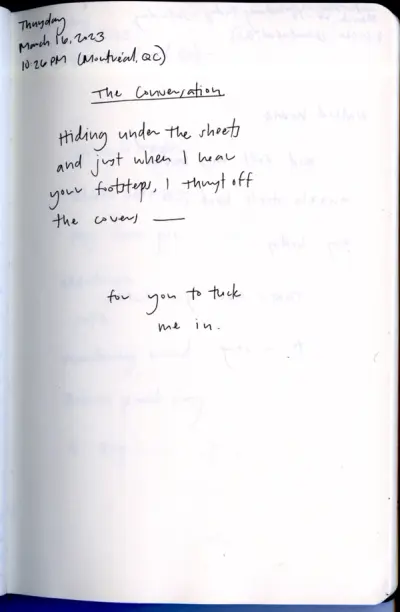 Thursday
March 16, 2023
10:26 PM (Montréal, QC)
The Conversation
Hiding under the sheets
and just when I hear
your footsteps, I thrust off
the covers —
for you to tuck
me in.